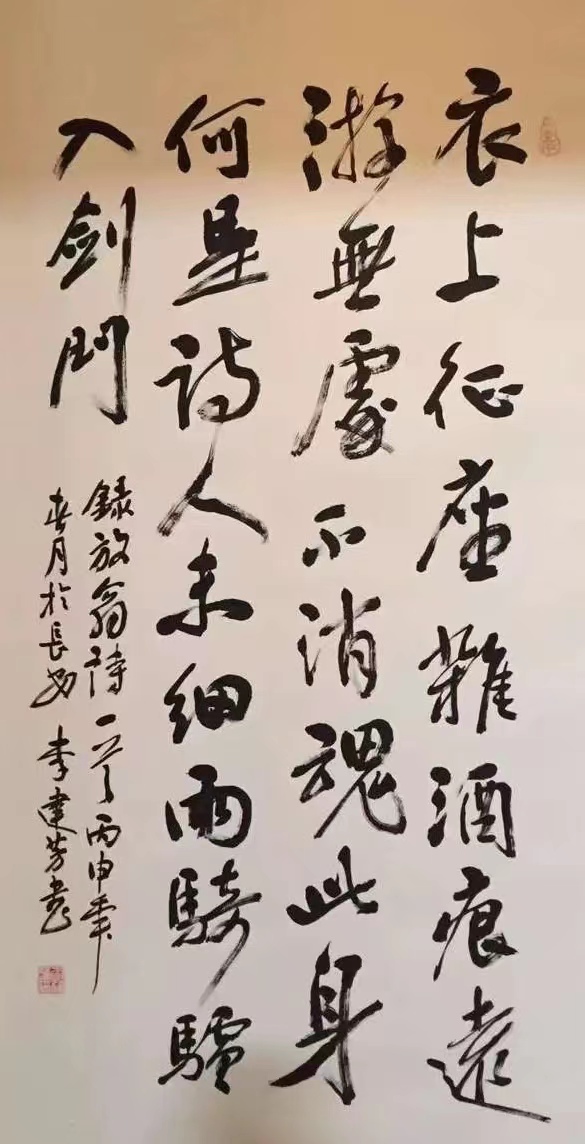 衣上征塵雜酒痕遠
游無處不消魂此身
何是詩人未細雨騎驢
入劍門
錄放翁詩一首丙申年
春月於長安 李建芳書